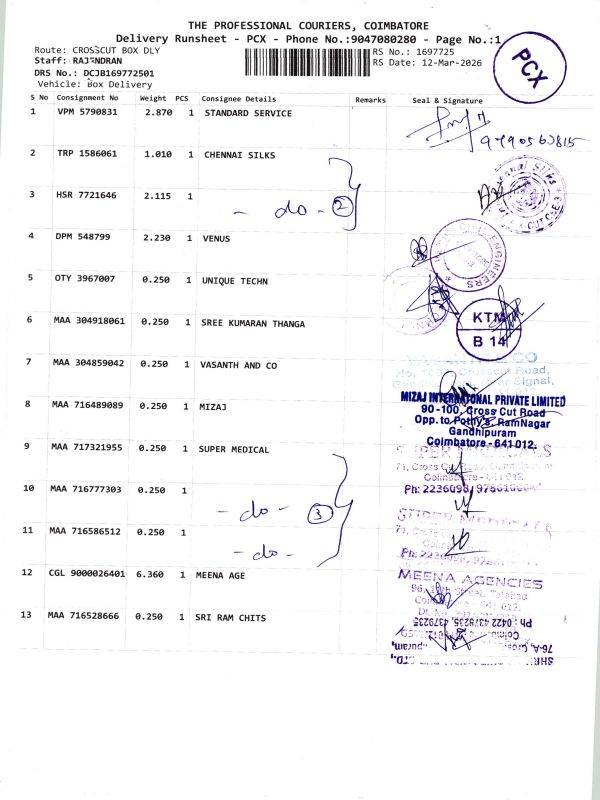 THE PROFESSIONAL COURIERS, COIMBATORE
Delivery Runsheet - PCX - Phone No.:9047080280 - Page No.:1
Route: CROSSCUT BOX DLY
RS No.: 1697725
Staff: RAJENDRAN
RS Date: 12-Mar-2026
DRS No.: DCJB169772501
Vehicle: Box Delivery
PCX
S No Consignment No Weight PCS Consignee Details Remarks Seal & Signature
1 VPM 5790831 2.870 1 STANDARD SERVICE
2 TRP 1586061 1.010 1 CHENNAI SILKS
3 HSR 7721646 2.115 1 - do - 2
4 DPM 548799 2.230 1 VENUS
ENGINEERS
5 OTY 3967007 0.250 1 UNIQUE TECHN
6 MAA 304918061 0.250 1 SREE KUMARAN THANGA
KTM
B 14
7 MAA 304859042 0.250 1 VASANTH AND CO
VASANTH & CO
Crosscut Road,
Signal,
8 MAA 716489089 0.250 1 MIZAJ
MIZAJ INTERNATIONAL PRIVATE LIMITED
90-100, Cross Cut Road
Opp. to Pothy's, RamNagar
Gandhipuram
Coimbatore - 641 012.
9 MAA 717321955 0.250 1 SUPER MEDICAL
71, Cross Cut Road,
Coimbatore - 641 012.
Ph: 2236098,
10 MAA 716777303 0.250 1 - do - 3
71, Cross
11 MAA 716586512 0.250 1 - do -
12 CGL 9000026401 6.360 1 MEENA AGE
MEENA AGENCIES
Street, Tatabad
641 012.
Ph : 0422 4378235, 4379235
13 MAA 716528666 0.250 1 SRI RAM CHITS
76-A, Cross